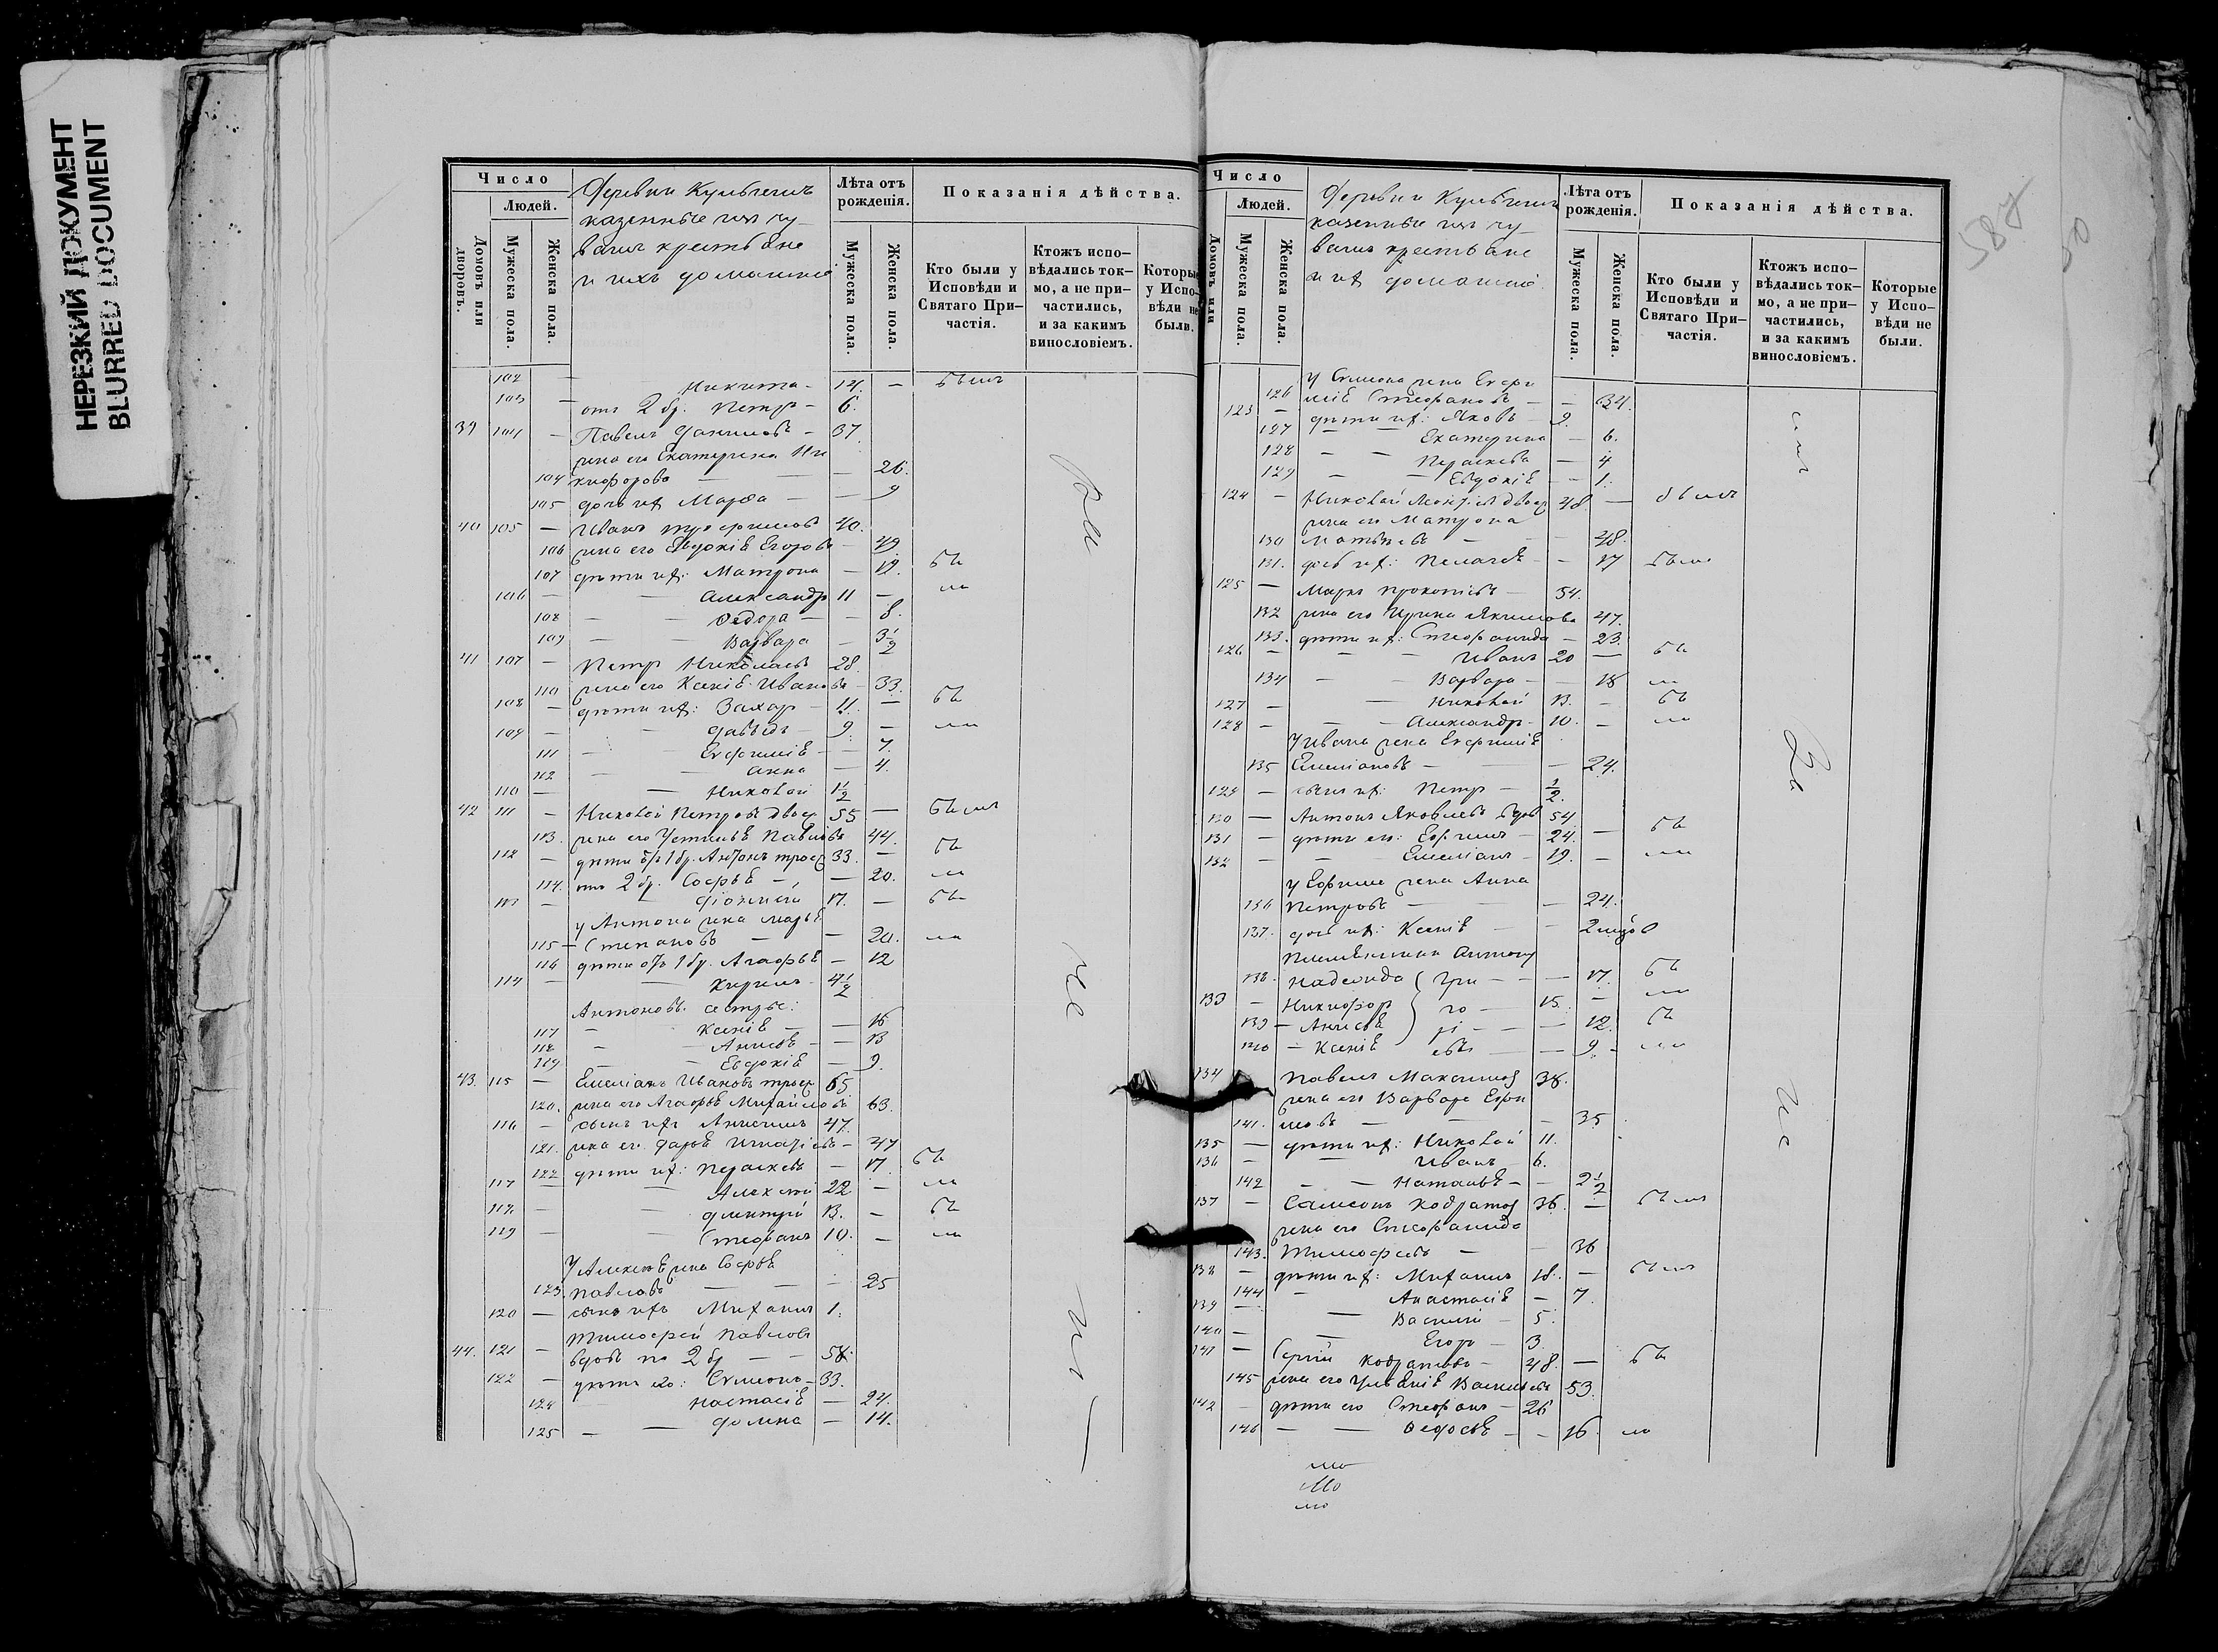 НЕРЕЗКИЙ ДОКУМЕНТ
BLURRED DOCUMENT
Число
Людей.
Домовъ или дворовъ.
Мужеска пола.
Женска пола.
Деревни
казенные изъ чу-
вашъ крестьяне
и ихъ домашніе
Лѣта отъ рожденія.
Мужеска пола.
Женска пола.
Показанія дѣйства.
Кто были у Исповѣди и Святаго При-частія.
Ктожъ испо-вѣдались ток-мо, а не при-частились, и за какимъ винословіемъ.
Которые у Испо-вѣди не были.
102 — Никита — 14. — былъ
103 — отъ 2 бр. Петръ — 6.
39 104 — Павелъ Даниловъ — 37.
жена его Екатерина Ни
104 кифорова — — 26.
105 дочь ихъ Марѳа — — 9
40 105 — Иванъ Трофимовъ 40.
106 жена его Евдокія Егорова — 49
107 дѣти ихъ: Матрона — 12. бы
106 — — Александръ 11 — ли
108 — — Ѳедора — — 8.
109 — — Варвара — 3½
41 107 — Петръ Николаевъ 28.
110 жена его Ксенія Иванова — 33.
108 — дѣти ихъ: Захаръ — 11. — бы
109 — — Давыдъ — 9. — ли
111 — Евфимія — — 7.
112 — — Анна — 4.
110 — — Николай 1½
42 111 — Николай Петровъ двоеж 55 — былъ
113. жена его Устинья Павлова 44.
112 — дѣти отъ 1 бр. Антонъ троеж 33. — бы
114. отъ 2 бр. Софья — — 20. ли
113 — Діонисій 17. — бы
у Антона жена Марья
115 — Степанова — — 20. ли
116 дѣти отъ 1 бр. Агафья — 12
114 — — Кирилъ — 4½
Антоновы сестры:
117 — Ксенія — — 16
118 — — Анисья — — 13
119 — — Евдокія — — 9.
43. 115 — Емеліанъ Ивановъ троеж 65
120. жена его Агафья Михайлова 63.
116 — сынъ ихъ Анисимъ 47.
121. жена его Дарья Игнатьева — 47
122 дѣти ихъ: Параскева — 17. бы
117 — — Алексѣй 22 — ли
118. — — Дмитрій 13. — бы
119 — — Стефанъ 10. — ли
У Алексѣя жена Софья
123. Павлова — — — 25
120 — сынъ ихъ Михаилъ 1.
Тимофей Павловъ
44. 121 — вдовъ по 2 бр — — 58.
122 — дѣти его: Симеонъ — 33.
124 — Настасія — 24.
125 — — Домна — 14.
Число
Людей.
Домовъ или
Мужеска пола.
Женска пола.
Деревни
казенные изъ чу-
вашъ крестьяне
и ихъ домашніе.
Лѣта отъ рожденія.
Мужеска пола.
Женска пола.
Показанія дѣйства.
Кто были у Исповѣди и Святаго При-частія.
Ктожъ испо-вѣдались ток-мо, а не при-частились, и за какимъ винословіемъ.
Которые у Испо-вѣди не были.
587
50
у Симеона жена Евфи
126 мія Стефанова — — 34.
123 — дѣти ихъ: Яковъ — 9.
127 — — Екатерина — 6.
128 — — Параскева — 4
129 — — Евдокія — — 1.
124 — Николай Леонтьевъ двоеж 48. — былъ
жена его Матрона
130 Матвѣева — — 48.
131. дочь ихъ: Пелагея — — 17 были
125 — Маркъ Прокопьевъ — 54.
132 жена его Ирина Якимова 47.
133. дѣти ихъ: Стефанида — 23.
126 — — — Иванъ 20 — бы
134 — — Варвара — — 18 ли
127 — — Николай 13. — бы
128 — — Александръ — 10. — ли
У Ивана жена Евфимія
135 Емеліанова — — 24.
129 — сынъ ихъ: Петръ — ½.
130 — Антонъ Яковлевъ вдовъ 54
131 — дѣти его: Ефимъ — 24. — бы
132 — — Емеліанъ — 19. — ли
у Ефима жена Анна
136 Петрова — — — 24.
137. дочь ихъ: Ксенія — — 2
Племянники Антону
138. Надежда ( Гри — — 17. бы
133 — Никифоръ го — 15. — ли
139 — Анисья рі — — — 12. бы
140 — Ксенія евы — — 9. — ли
134 Павелъ Максимов 38.
жена его Варвара Ефи
141. мова — — — 35
135 — дѣти ихъ: Николай 11.
136 — Иванъ — 6.
142 — — Наталья — — 2½
137 — Самсонъ Кодратов 36. — былъ
жена его Стефанида
143. Тимофеева — — 36
138 — дѣти ихъ: Михаилъ 18. — былъ
144 — Анастасія — 7.
139 — — Василій — 5.
140 — — Егоръ — 3.
141 — Сергій Кодратовъ — 48. — бы
145 жена его Ульянія Васильева 53.
142 — дѣти его Стефанъ — 26
146 — — Ѳедосья — — 16. ли